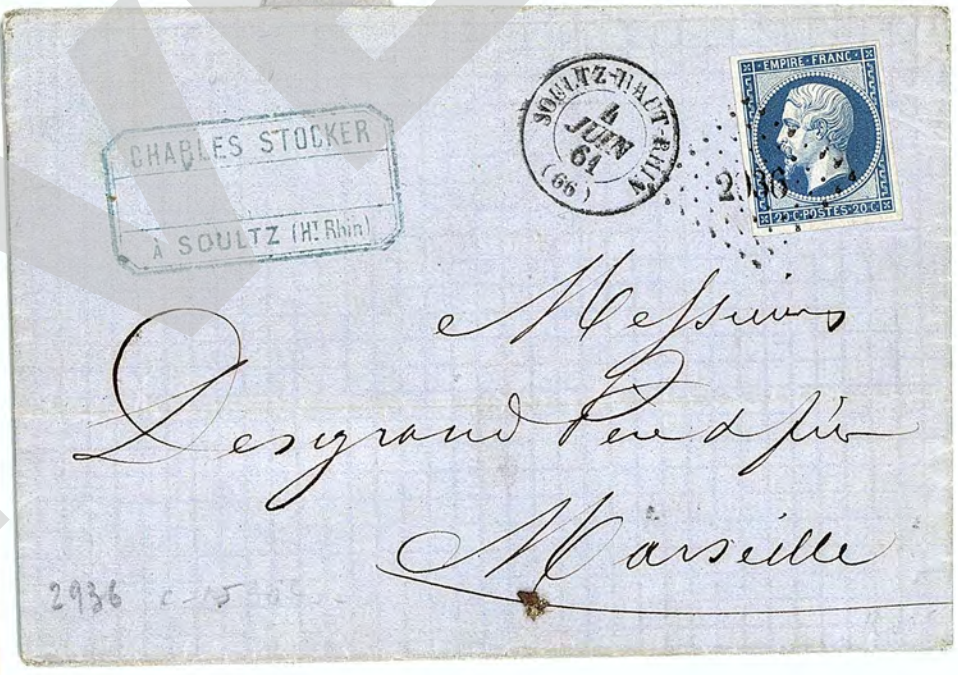 CHARLES STOCKER
À SOULTZ (HT Rhin)
SOULTZ-HAUT-RHIN
4
JUIN
61
(66)
EMPIRE FRANC
2936
20 C POSTES 20 C
Messieurs
Desgrand Père & fils
Marseille
2936